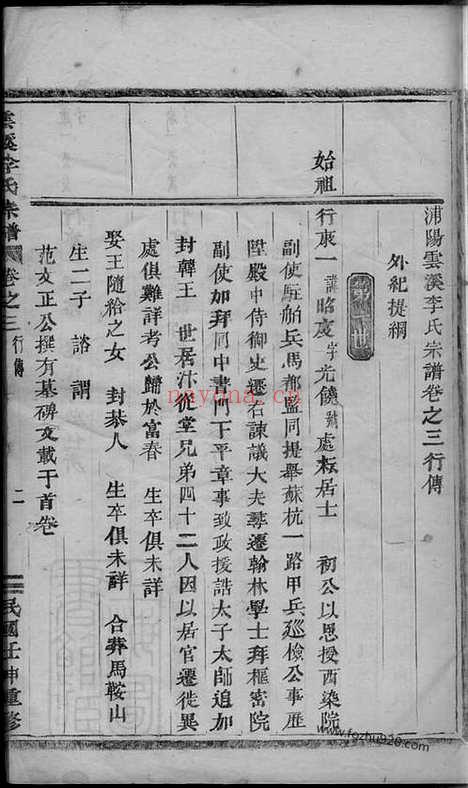 浦陽雲溪李氏宗譜卷之三行傳
外紀提綱
第一世
始祖
行衷一 諱昭度字光儀號處耘居士 初公以恩授西染院
副使駐舶兵馬都監同提舉蘇杭一路甲兵巡檢公事歷
陞殿中侍御史遷右諫議大夫尋遷翰林學士拜樞密院
副使加拜同中書門下平章事致政援誥太子太師追加
封韓王 世居汴從堂兄弟四十二人因以居官遷徙異
處俱難詳考公歸於富春 生卒俱未詳
娶王隨給之女 封恭人 生卒俱未詳 合葬馬鞍山
生二子 諮 謂
范文正公撰有墓碑文載于首卷
雲溪李氏宗譜 卷之三 行傳 二 民國壬申重修
nayona.cn
www.fozhu920.com